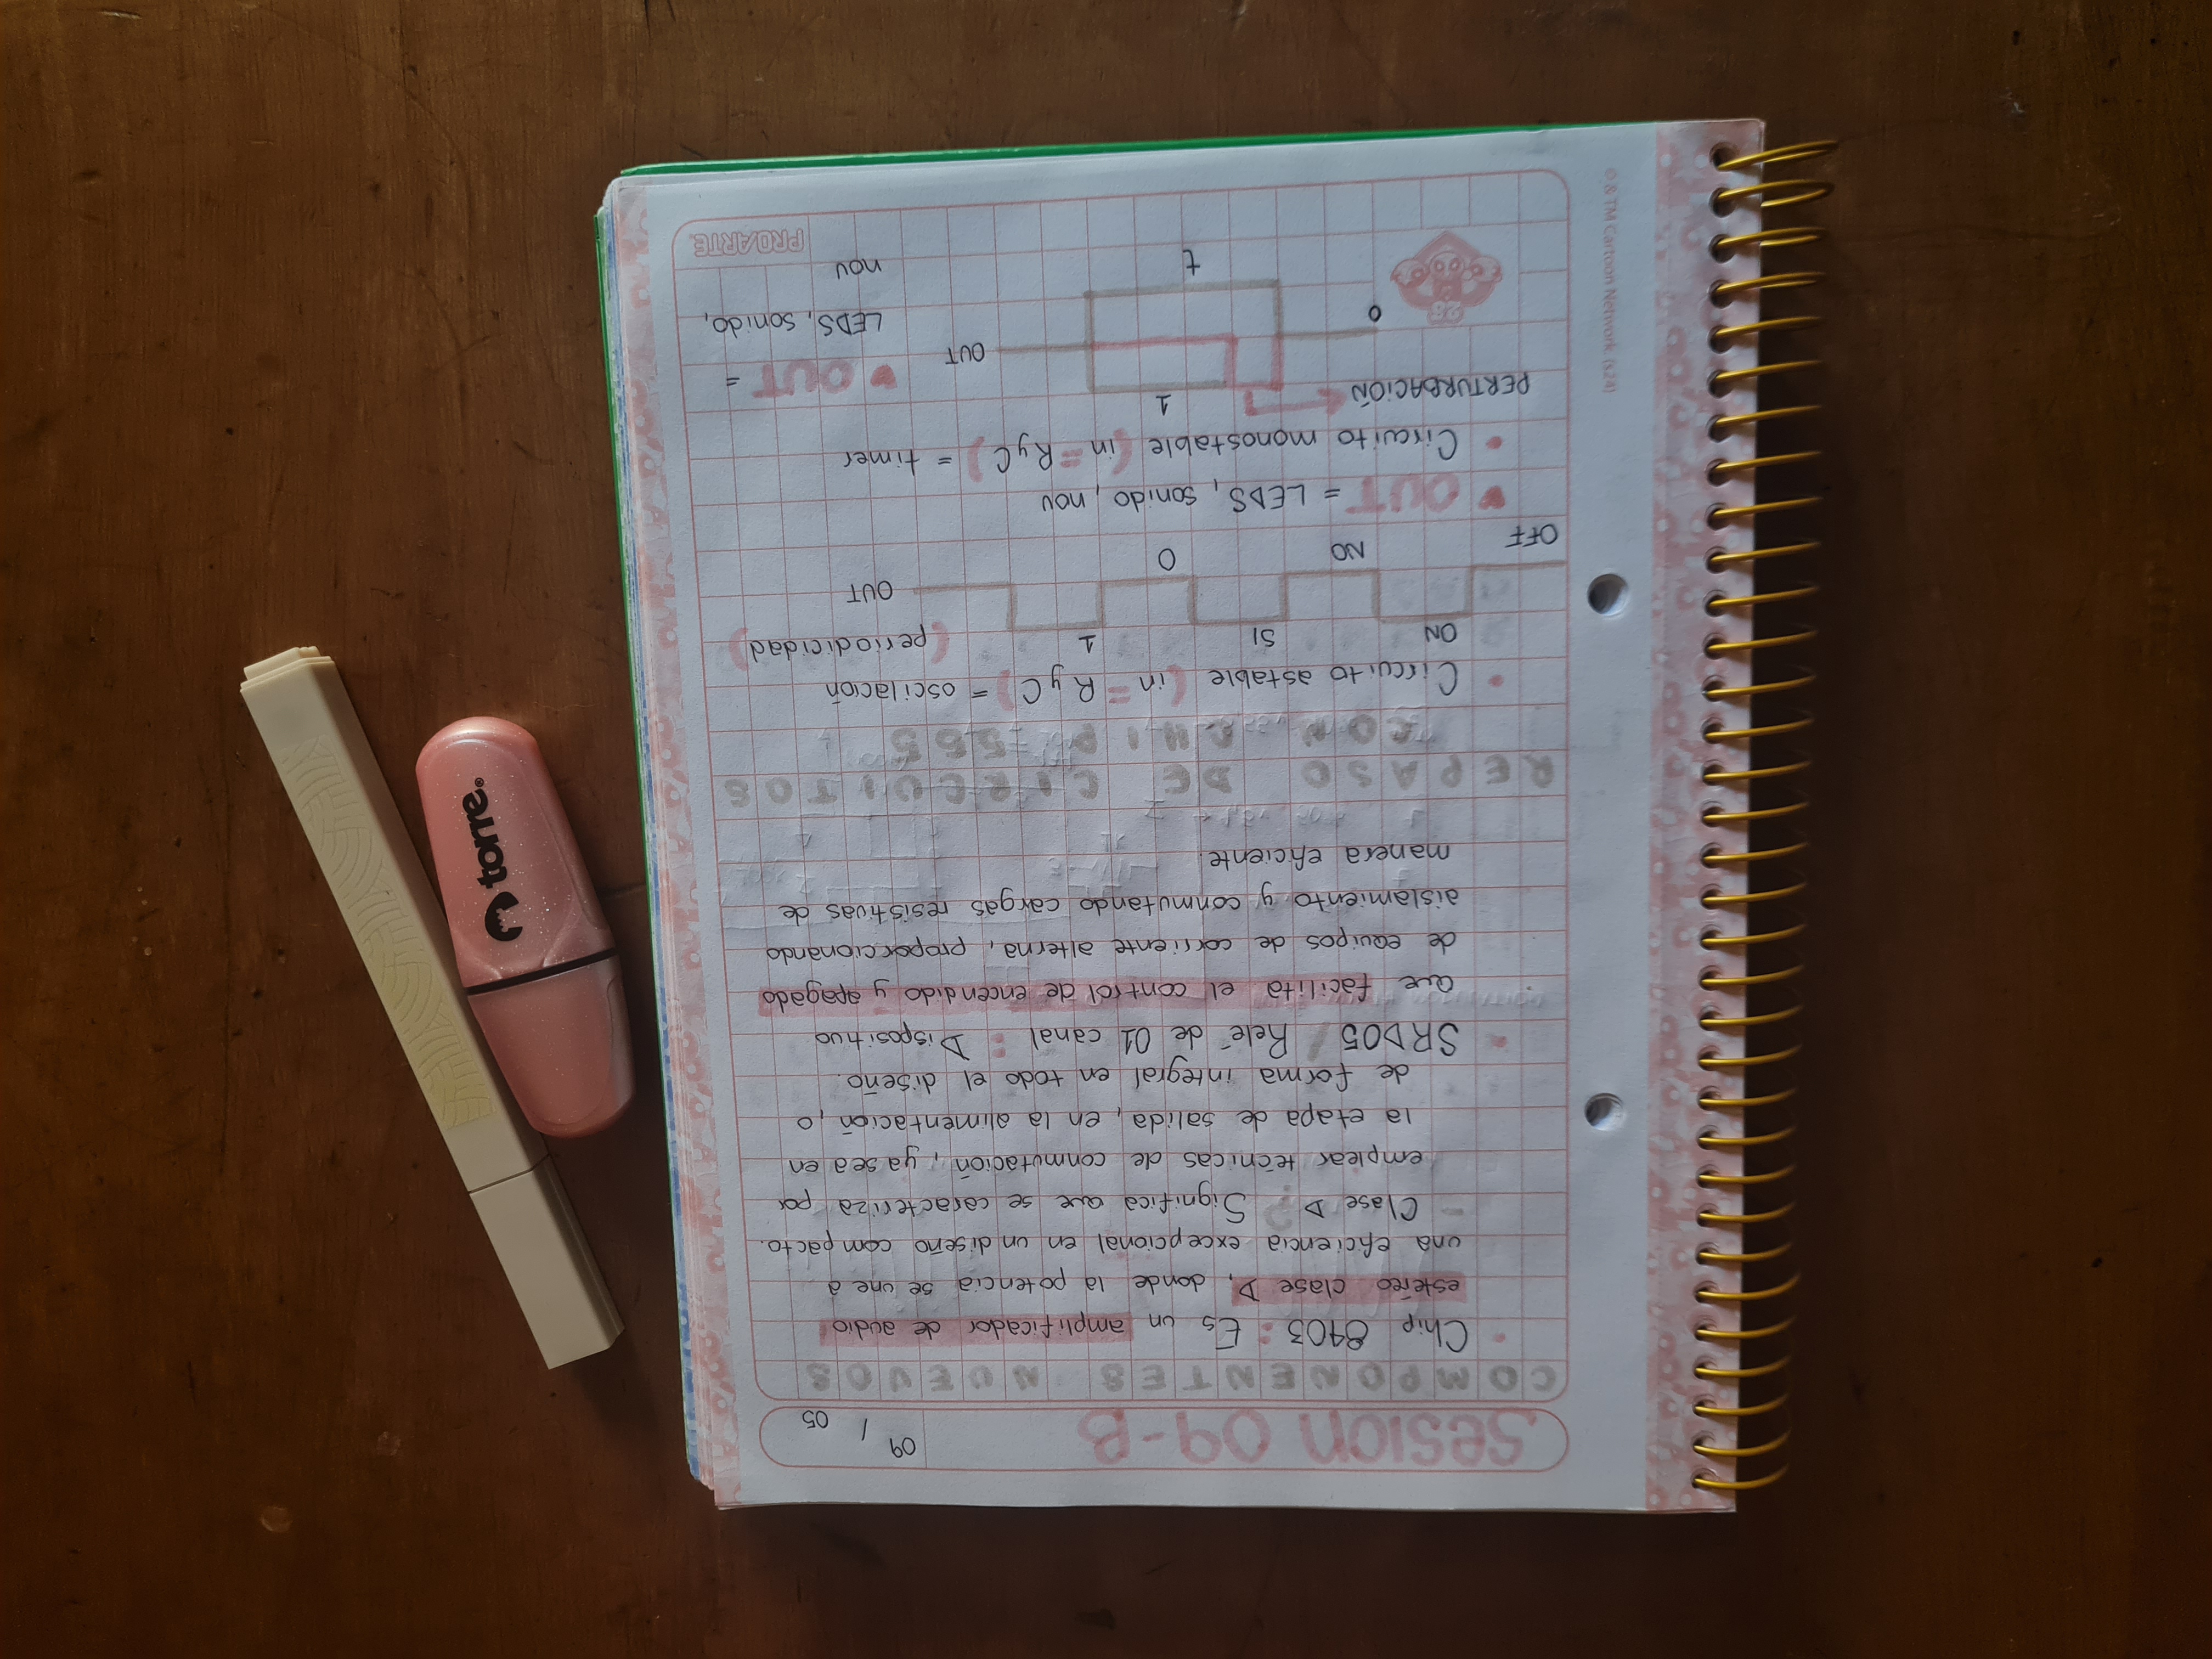 Sesion 09-B
09 / 05
COMPONENTES NUEVOS
• Chip 8403: Es un amplificador de audio
estéreo clase D, donde la potencia se une a
una eficiencia excepcional en un diseño compacto.
- Clase D? Significa que se caracteriza por
emplear técnicas de conmutación, ya sea en
la etapa de salida, en la alimentación, o
de forma integral en todo el diseño.
• SRD05 / Relé de 01 canal: Dispositivo
que facilita el control de encendido y apagado
de equipos de corriente alterna, proporcionando
aislamiento y conmutando cargas resistivas de
manera eficiente.
REPASO DE CIRCUITOS
CON CHIP 555
• Circuito astable (in = R y C) = oscilación
(periodicidad)
ON SI 1
OUT
OFF NO 0
♥ OUT = LEDS, sonido, nou
• Circuito monostable (in = R y C) = timer
PERTURBACIÓN 1
♥ OUT =
OUT
LEDS, sonido,
0
nou
t
28
PROARTE
© & TM Cartoon Network. (s24)
torre®